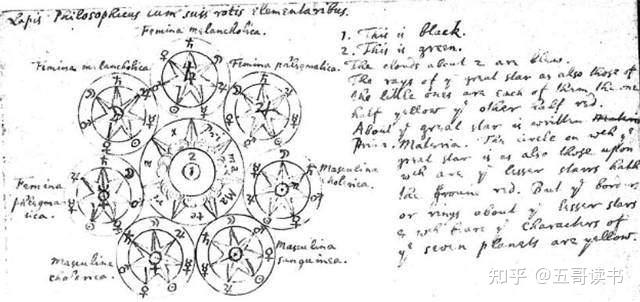 Lapis Philosophicus cum suis rotis elementaribus.
Femina melancholica.
Femina melancholica.
Femina phlegmatica.
Femina
phlegma-
tica.
Masculina
cholerica.
Masculina
cholerica.
Masculina
sanguinea.
2
1
1. This is black.
2. This is green.
The clouds about 2 are blew.
The rays of yᵉ great star as also those of
the little ones are each of them the one
half yellow yᵉ other half red.
About yᵉ great star is written
Prim. Materia. The circle on wᶜʰ yᵉ
great star is as also those upon
wᶜʰ are yᵉ lesser starrs hath
the ground red. But yᵉ borders
or rings about yᵉ lesser stars
& wᶜʰ beare yᵉ characters of
yᵉ seven planets are yellow.
知乎 @五哥读书